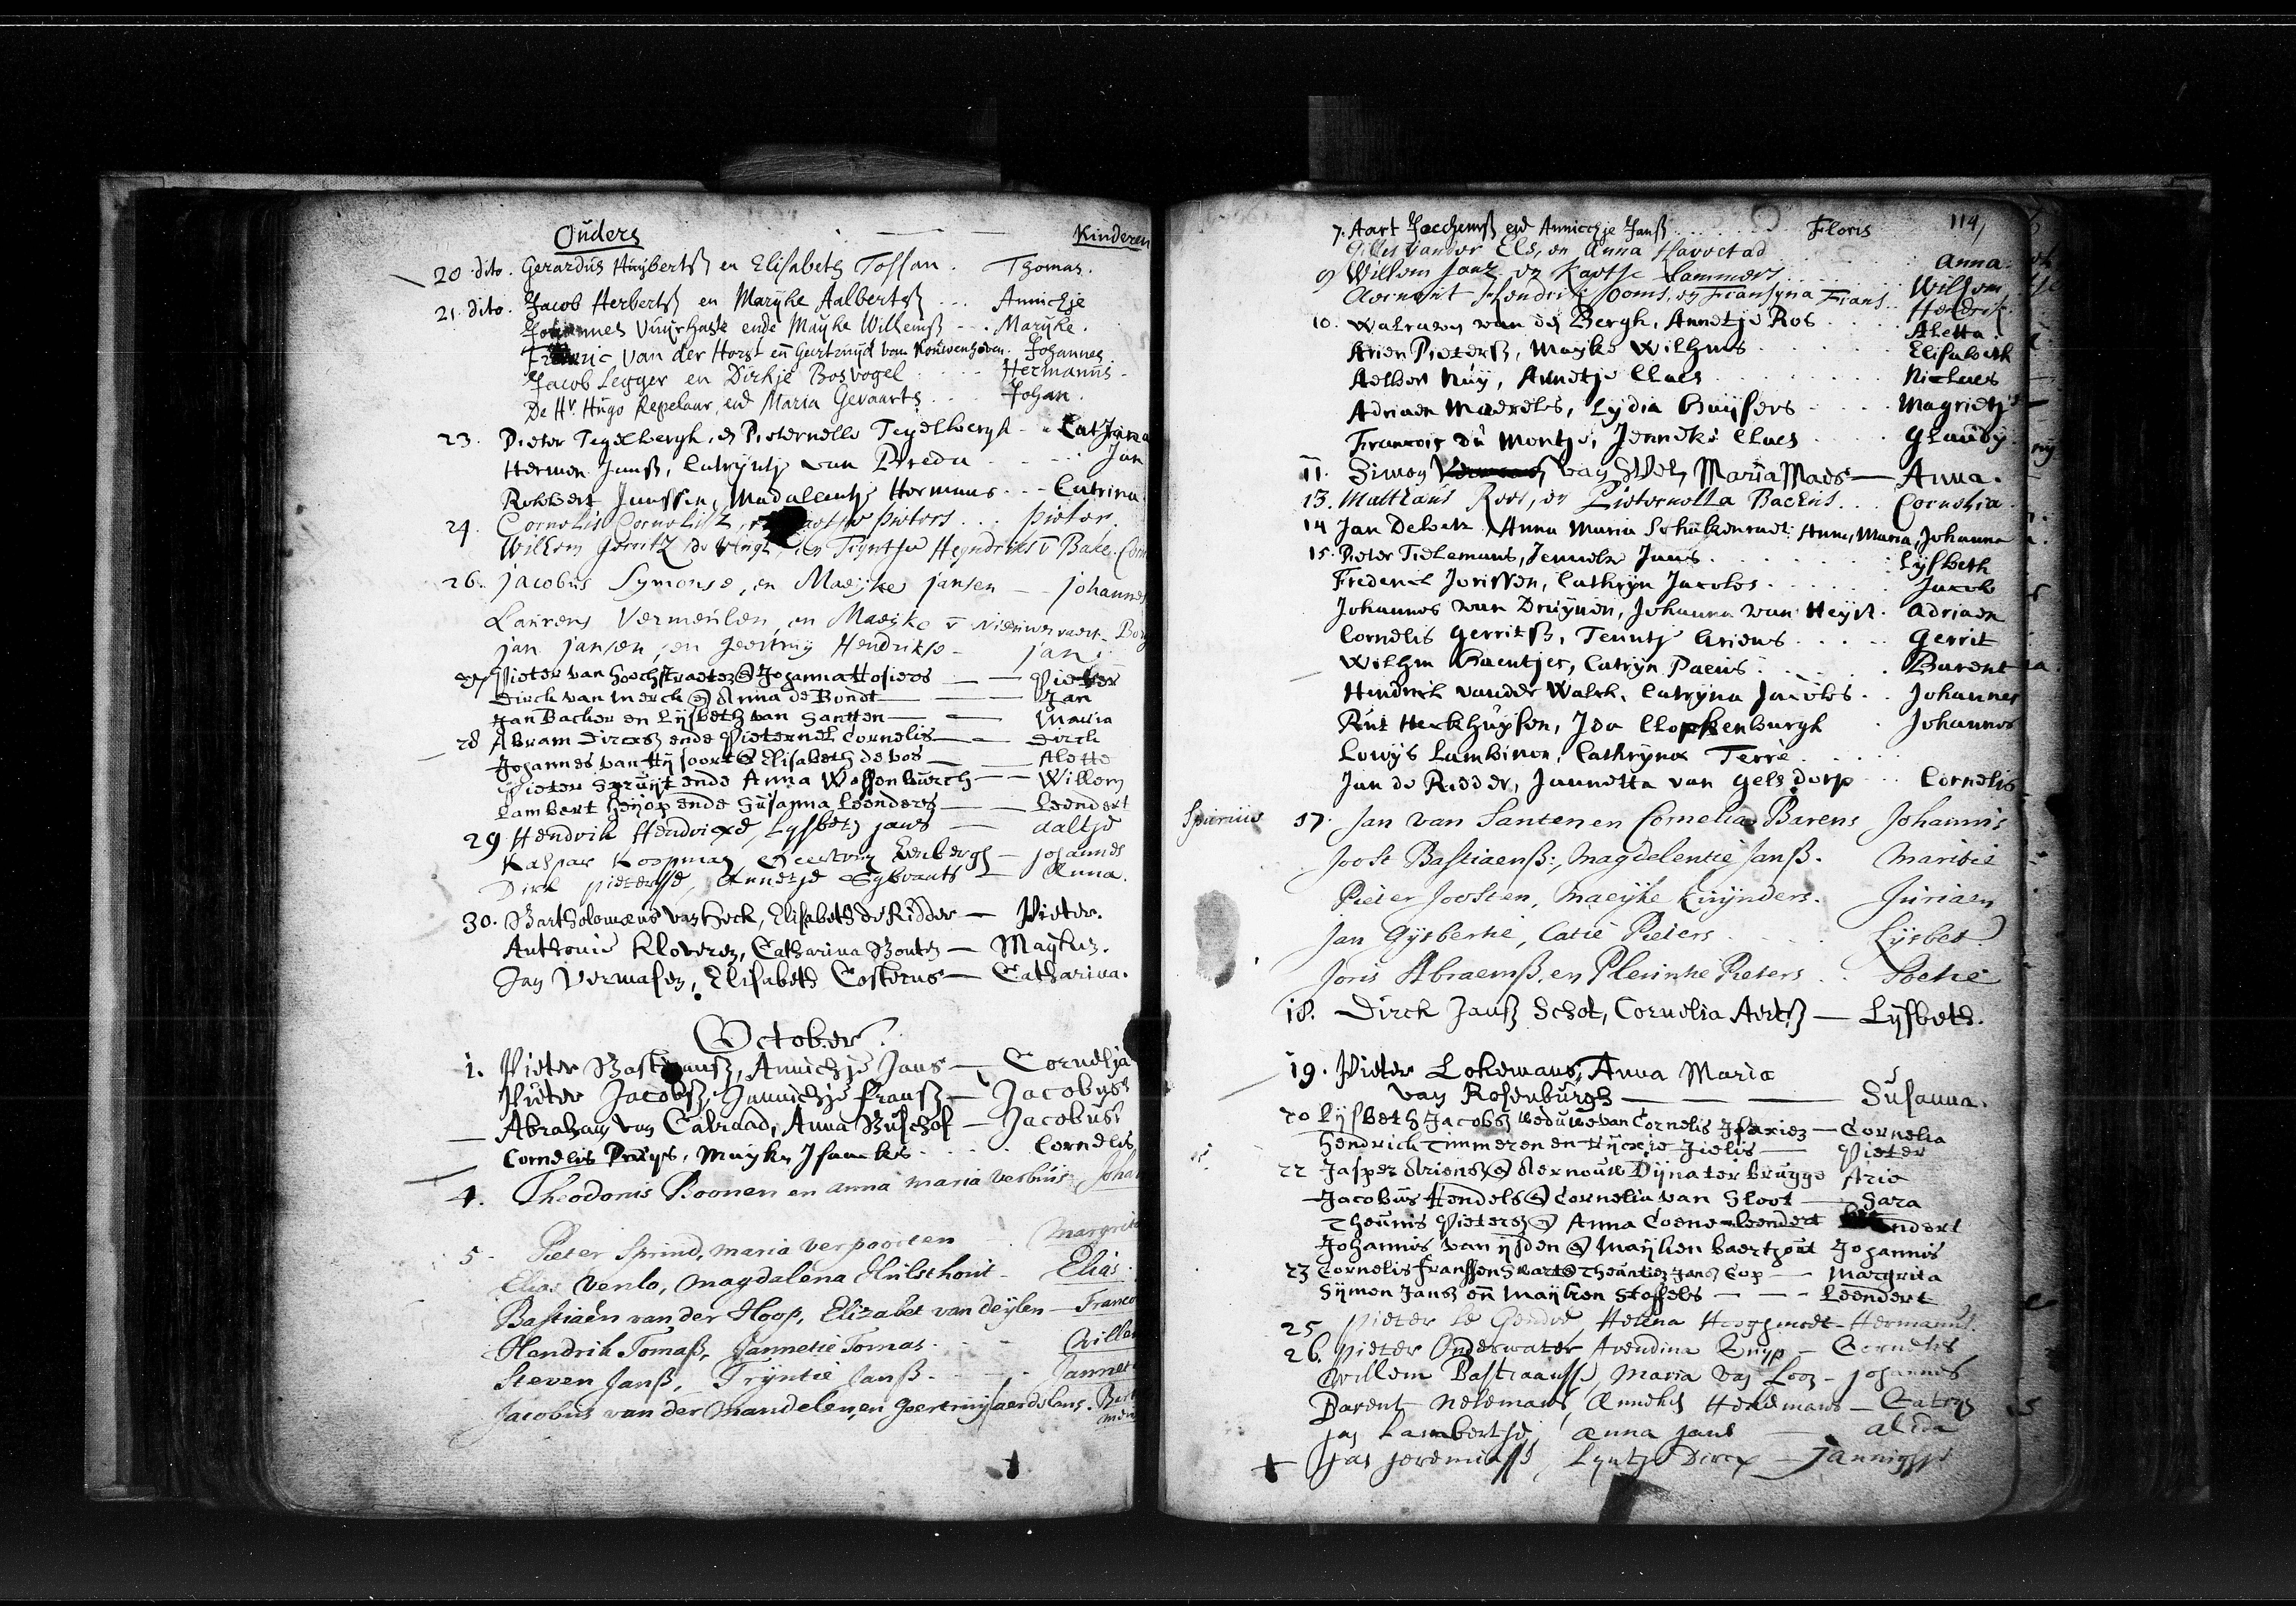 Ouders Kinderen
20 dito. Gerardus Huijbertß en Elisabeth Tossan. Thomas.
21. dito. Jacob Herbertß en Marijke Aalbertß ... Annichje
Johannes Vuijrhaste ende Mayke Willemß - . Maryke.
van der Horst en Geertruijd van Kouwenhoven. Johannes
Jacob Legger en Dirkje Bosvogel Hermanus -
De Hr. Hugo Repelaar, end Maria Gevaarts Johan.
23. Pieter Tegelbergh, en Pieternelle Tegelbergh - Catrina
Hermen Janß, Catrijntje van Breda Jan
Robbert Janssen, Madalentje Hermans - - - Catrina
24. Cornelis Cornelisz, Pieters . . . Pieter.
Willem Gerritz de en Tryntje Heyndriks v Bake.
26. Jacobus Symonse, en Maeijke Jansen - - Johannes
Laurens Vermeulen, en Maeijke v Nieuwervaert -
jan jansen, en geertruij Hendrikse - jan
27 Pieter van Hoochstraeten & Johanna Hofiers — Pieter
Dirck van Merck & Anna de Bondt — Jan
Jan Backer en Lijsbeth van Santten — Maria
28 Abram Dircxsz ende Pieternel Cornelis — Dirck
Johannes van Hijsoort & Elisabeth de vos — Alette
Pieter Spruijt ende Anna Wessenburch — Willem
Lambert Heijop ende Susanna Leenders — Leendert
29. Hendrik Hendricxe, Lysbeth jans — aaltje
Kaspar Koopman, Geertruy — johannes
Dirk pieterse, Annetje Sybrants — Anna.
30. Bartholomeus van Heck, Elisabeth de Ridder — Pieter.
Anthonie Kloveren, Catharina Bouten — Mayken.
Jan Vermasen, Elisabeth Costerus — Catharina.
October.
1. Pieter Bastiaansz, Annichje Jans — Cornelia
Pieter Jacobsz, Jannichje Fransz — Jacobus
Abraham van Calraad, Anna Busschof — Jacobus
Cornelis Pruijs, Mayke Isaacks . . . . Cornelis
4. Theodorus Boonen en anna maria verbuis
5. Pieter Sprind, maria verpoorten
Elias Venlo, Magdalena Hulsthout - Elias.
Bastiaen van der Hoop, Elizabet van deylen —
Hendrik Tomaß, Jannetie Tomas.
Steven Janß, Tryntie Janß.
Jacobus van der mandelen, en geertruy
7. Aart Jochemß end Annichje Janß ..... Floris 114
Gillis vander Els, en Anna Havestad Anna.
9 Willem Janz en Kaetje Lammers Willem
Aernout Hendrik Ooms, en Fransyna Frans Hendrik
10. Walraven van den Bergh, Annetje Ros Aletta
Arien Pieterß, Mayke Wilhms Elisabeth
Aelbert Nuij, Annetje Claes Niclaes
Adriaen Maerels, Lydia Buijsers Magrietje
Francois du Montje, Jenneke Claes Glaudy
11. Simon van Wel, Maria Maes — Anna.
13. Matthans Roos, en Pieternella Backus .. Cornelia
14 Jan Anna Maria Anna, Maria, Johanna
15. Pieter Tielemans, Jenneke Jans Lysbeth
Frederick Jorissen, Cathrijn Jacobs Jacob
Johannes van Druijnen, Johanna van Heijst. Adriaen
Cornelis Gerritß, Teuntje Ariens Gerrit
Wilhm Baentjes, Catrijn Paeus Barent
Hendrick vander Walck, Catrijna Jacobs .. Johannes
Rut Heckhuijsen, Ida Cloppenburgh . Johannes
Lowijs Lambinon, Cathrijna Terre
Jan de Ridder, Jannetta van Gelsdorp ... Cornelis
Spurius 17. Jan van Santen en Cornelia Barens Johannis
Joost Bastiaenß:, Magdelentie Janß. Maritie
Pieter Joosten, Maeijke Kuijnders. Juriaen
Jan Gijsbertie, Catie Pieters Lijsbet
Joris Abraemß, en Pleuntie Pieters Soetie
18. Dirck Jansz Schot, Cornelia Aertsz — Lysbeth.
19. Pieter Lokemans, Anna Maria
van Rosenburgh — Susanna.
20 Lijsbeth Jacobsz weduwe van Cornelis — Cornelia
Hendrick Timmeren en Rijckje Jielis — Pieter
22 Jasper Ariensz & Aernoutie Dijna ter brugge Arie
Jacobus Hendels & Cornelia van Sloot — Sara
Theunis Pietersz & Anna Coene Leendert
Johannis van Ijsden & Mayken baerthout Johannis
23 Cornelis Franssen Swart & Theuntien Jansz Cop — Margrita
Sijmen Jansz en Mayken Stoffels - - - Leendert
25. pieter le Gendre, Helena Hooghmoet - Hermanus.
26. pieter Onderwater Arendina Cuyp — Cornelis
Willem Bastiaansse, Maria van Loon - johannes
Barent Nelemans, Anneken Heilemans — Catryn
jan Lambertse, Anna jans alida
jan jeremiasse, Lyntje Dircx — jannigje